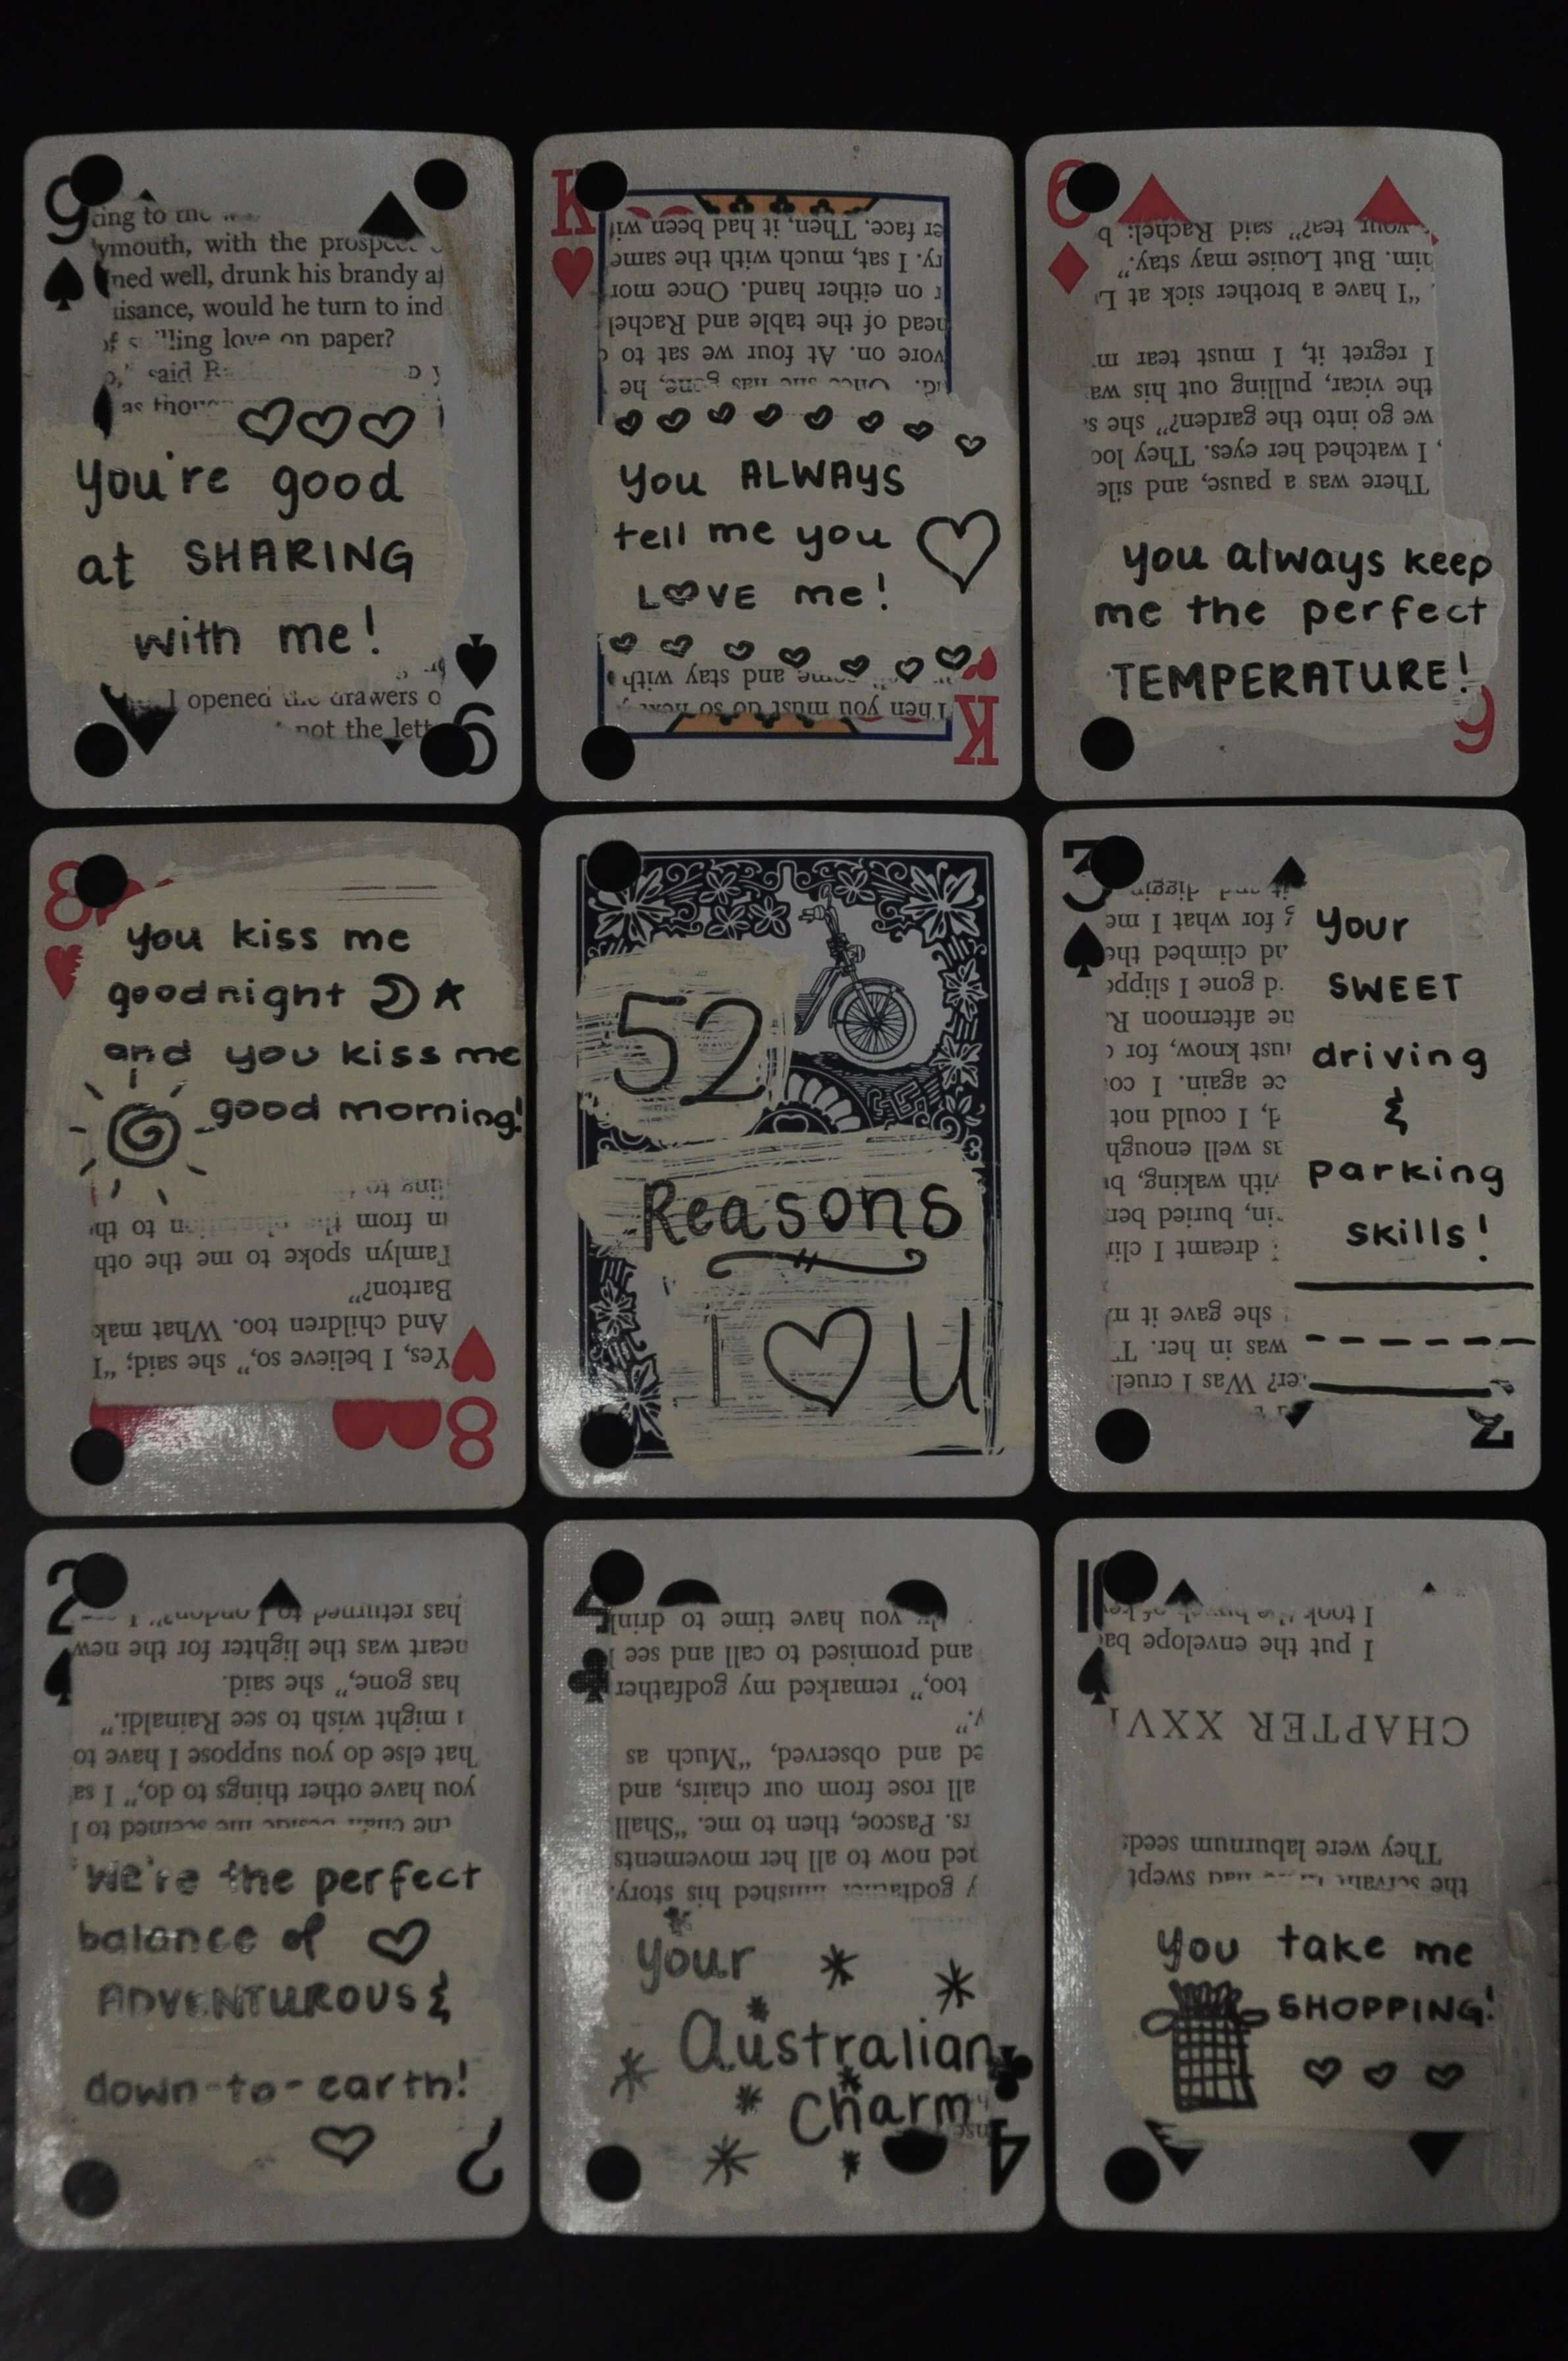 9
ymouth, with the
ned well, drunk his brandy
isance, would he turn to
love on paper?
said
You're good
at SHARING
with me!
I opened the drawers
not the
9
K
er face. Then, it had been
I sat, much with the same
on either hand. Once
head of the table and Rachel
on. At four we sat to
Once she has gone, he
You ALWAYS
tell me you
LOVE me!
and stay with
Then you must do so
K
6
your tea?" said Rachel;
him. But Louise may stay."
"I have a brother sick at
I regret it, I must tear
the vicar, pulling out his
we go into the garden?" she
I watched her eyes. They
There was a pause, and
you always keep
me the perfect
TEMPERATURE!
6
8
you kiss me
goodnight
and you kiss me
good morning!
in from the plantation to
Tamlyn spoke to me the
Barton?"
And children too. What
Yes, I believe so," she said; "I
8
52
Reasons
I U
3
for what I
climbed
gone I
afternoon
just know, for
again. I
I could not
as well enough
with waking,
buried
dreamt I
she gave it
was in her.
Was I cruel
your
SWEET
driving
&
parking
skills!
3
2
has returned to London?"
heart was the lighter for the new
has gone," she said.
I might wish to see Rainaldi."
What else do you suppose I have to
you have other things to do," I
the chair beside me seemed to
We're the perfect
balance of
ADVENTUROUS &
down-to-earth!
2
4
you have time to drink
and promised to call and see
too," remarked my godfather
and observed, "Much as
all rose from our chairs, and
Pascoe, then to me. "Shall
now to all her movements
godfather finished his story.
your
Australian
Charm
4
I took the
I put the envelope
CHAPTER
They were laburnum seeds
the servant had swept
You take me
SHOPPING!